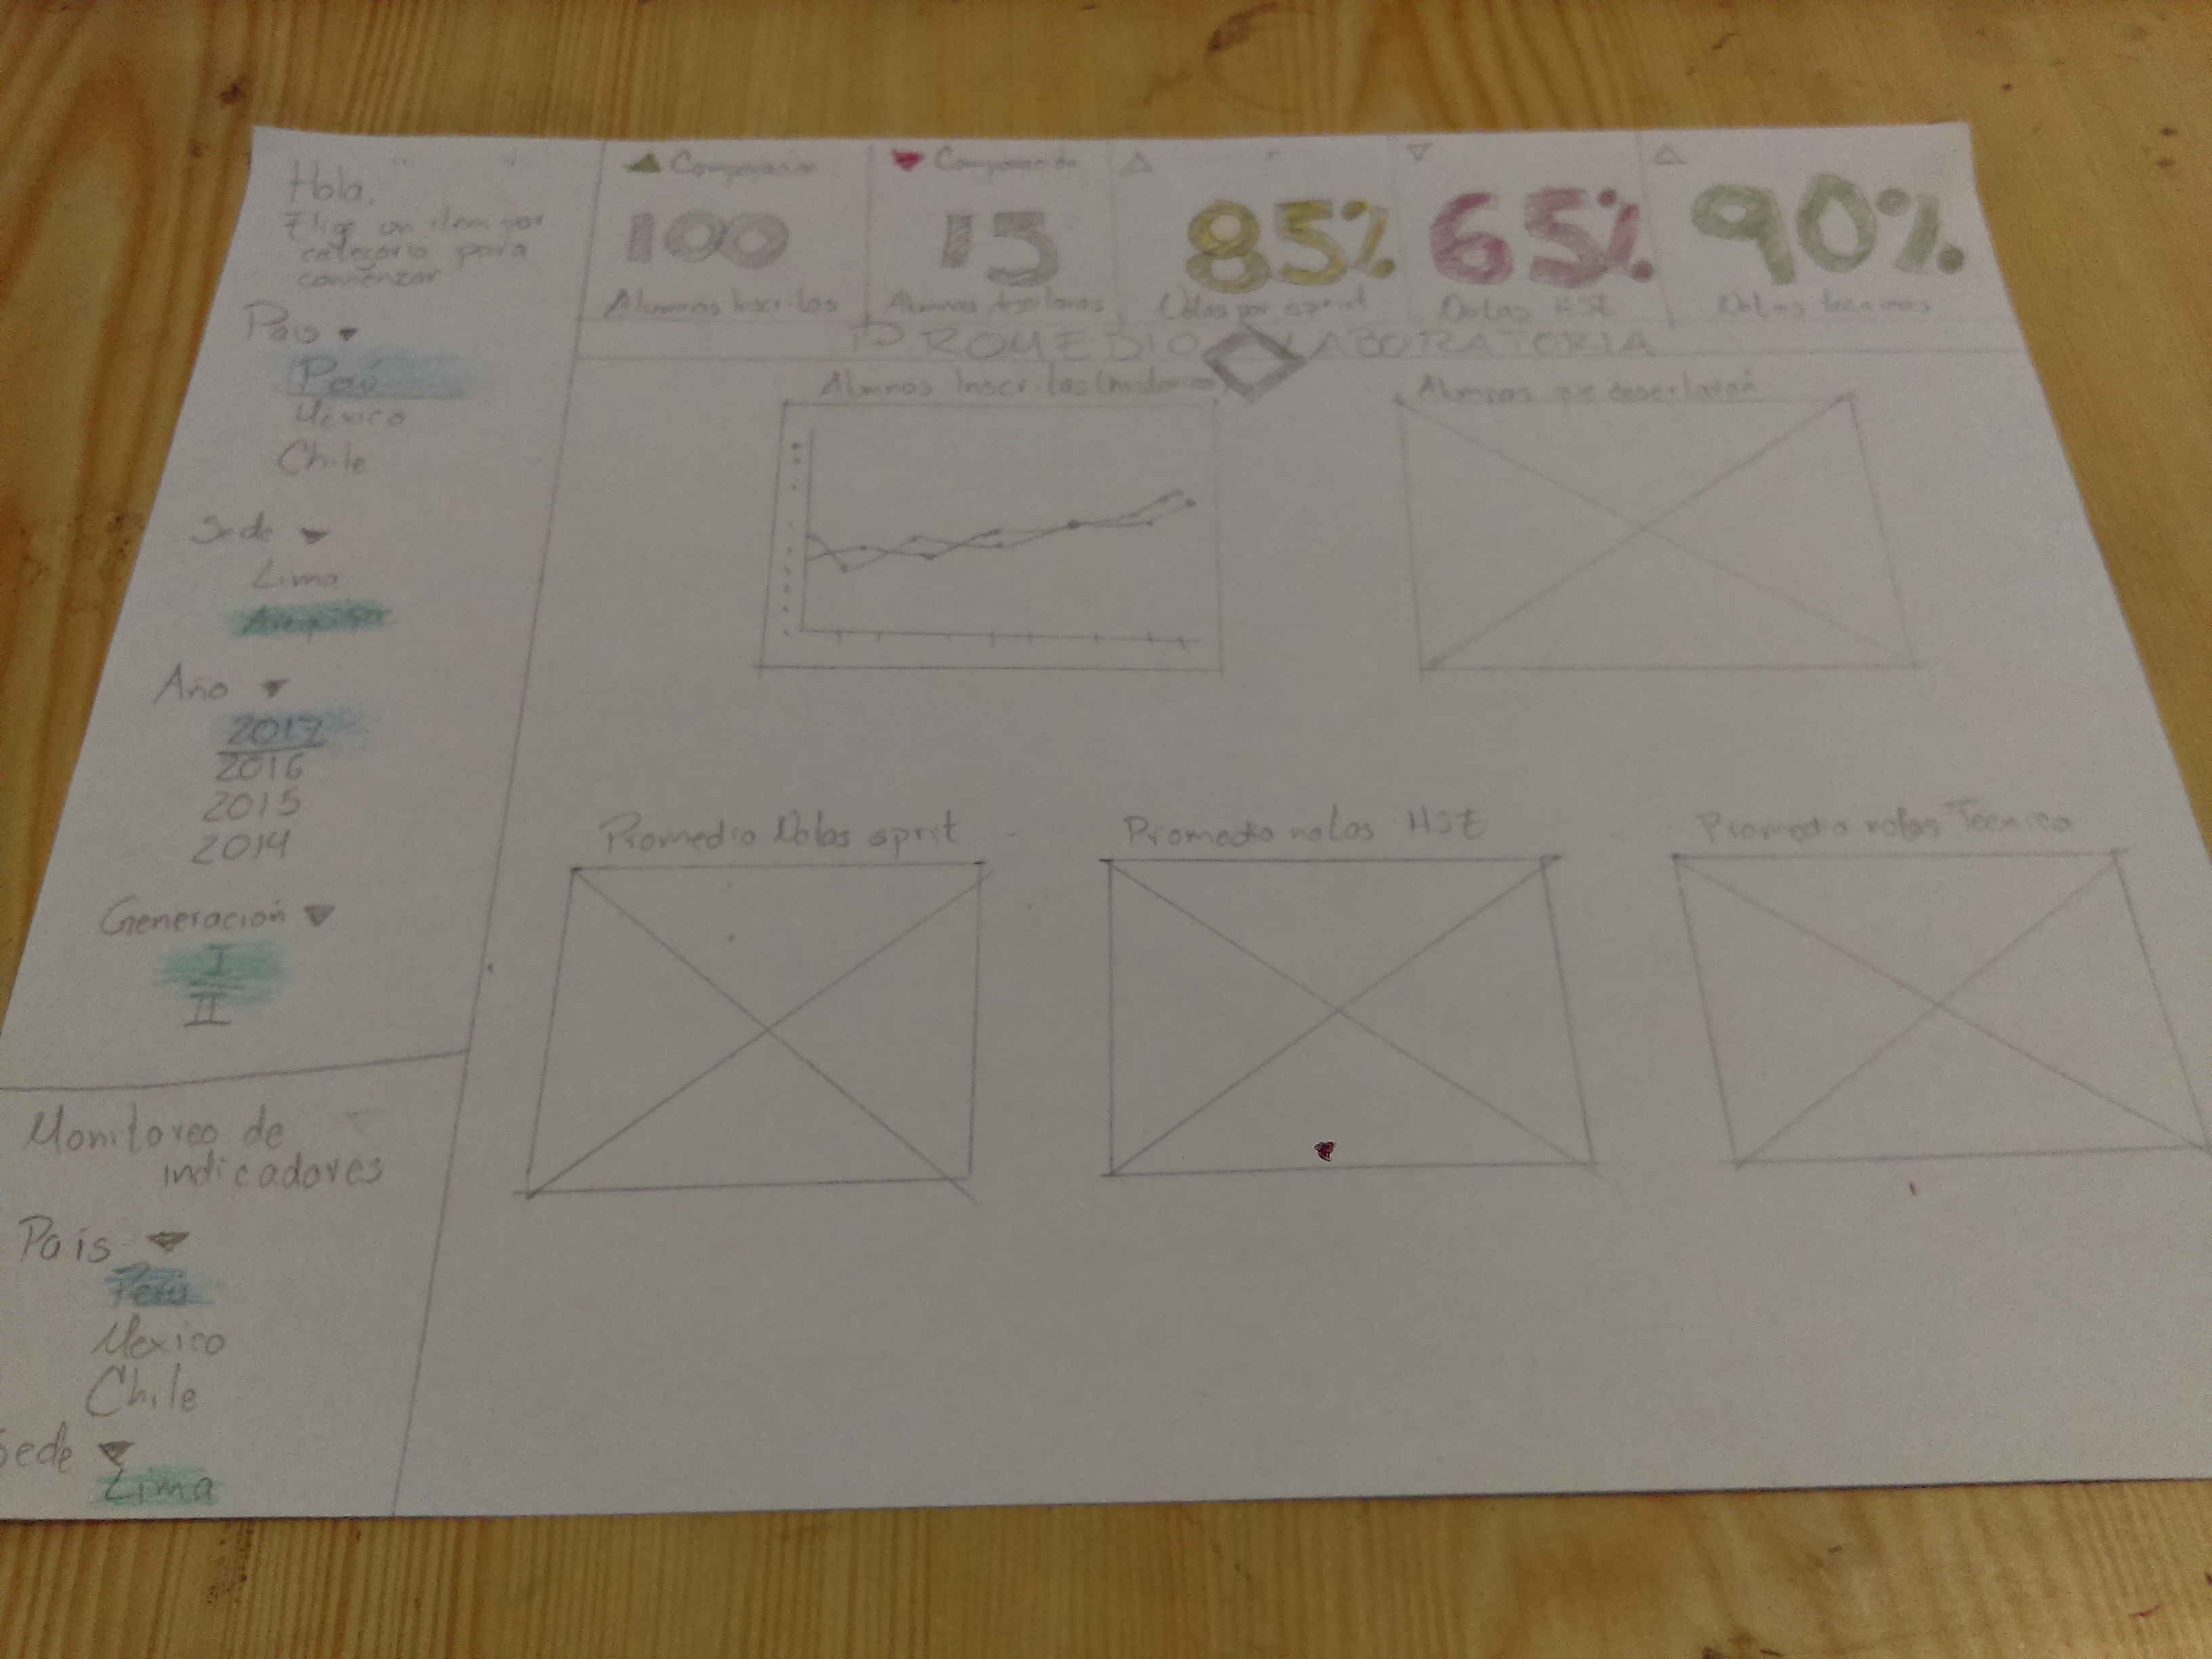 Hola,
Elige un item por
categoria para
comenzar
País
Perú
México
Chile
Sede
Lima
Arequipa
Año
2017
2016
2015
2014
Generación
I
II
Monitoreo de
indicadores
País
Perú
Mexico
Chile
Sede
Lima
Comparación
100
Alumnas Inscritas
Comparación
15
Alumnas desertoras
85%
Notas por sprint
65%
Notas HSE
90%
Notas tecnicas
PROMEDIO LABORATORIA
Alumnas Inscritas (historico)
Alumnas que desertaron
Promedio Notas sprit
Promedio notas HSE
Promedio notas Tecnica